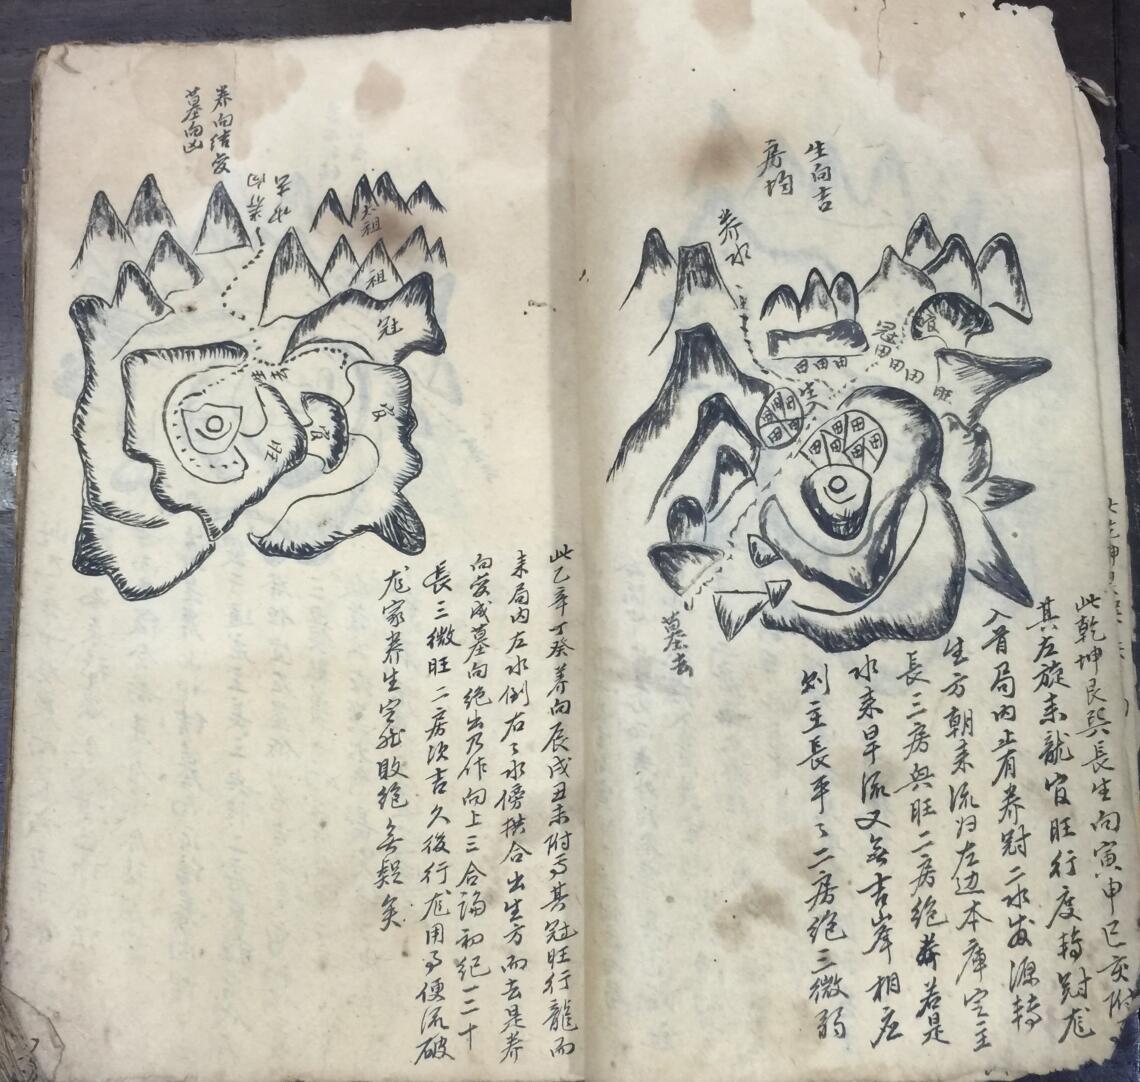 生向吉
房均
养水
冠
官
旺
生入
田田田
田田田田
墓去
此乾坤艮巽長生向寅申巳亥附
其左旋来龍官旺行度轉冠尨
入首局内止有养冠二水发源轉
生方朝来流归左边本庫定主
長三房與旺二房绝养若是
水来旱流又无吉岸相应
则主長平〻二房绝三微弱
养向结发
墓向凶
太祖
祖
冠
官
旺
生
此乙辛丁癸养向辰戌丑未附焉其冠旺行龍而
来局内左水倒右〻水傍拱合出生方而去是养
向发成墓向绝出乃作向上三合論初纪一二十
長三微旺二房次吉久後行尨用事便流破
尨家养生定然敗绝無疑矣